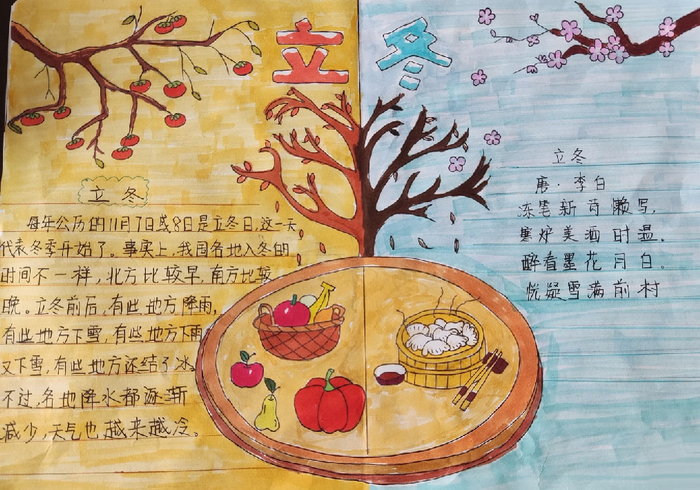 立冬
立冬
每年公历的11月7日或8日是立冬日,这一天
代表冬季开始了。事实上,我国各地入冬的
时间不一样,北方比较早,南方比较
晚。立冬前后,有些地方降雨,
有些地方下雪,有些地方下雨
又下雪,有些地方还结了冰。
不过,各地降水都逐渐
减少,天气也越来越冷。
立冬
唐·李白
冻笔新诗懒写,
寒炉美酒时温。
醉看墨花月白。
恍疑雪满前村